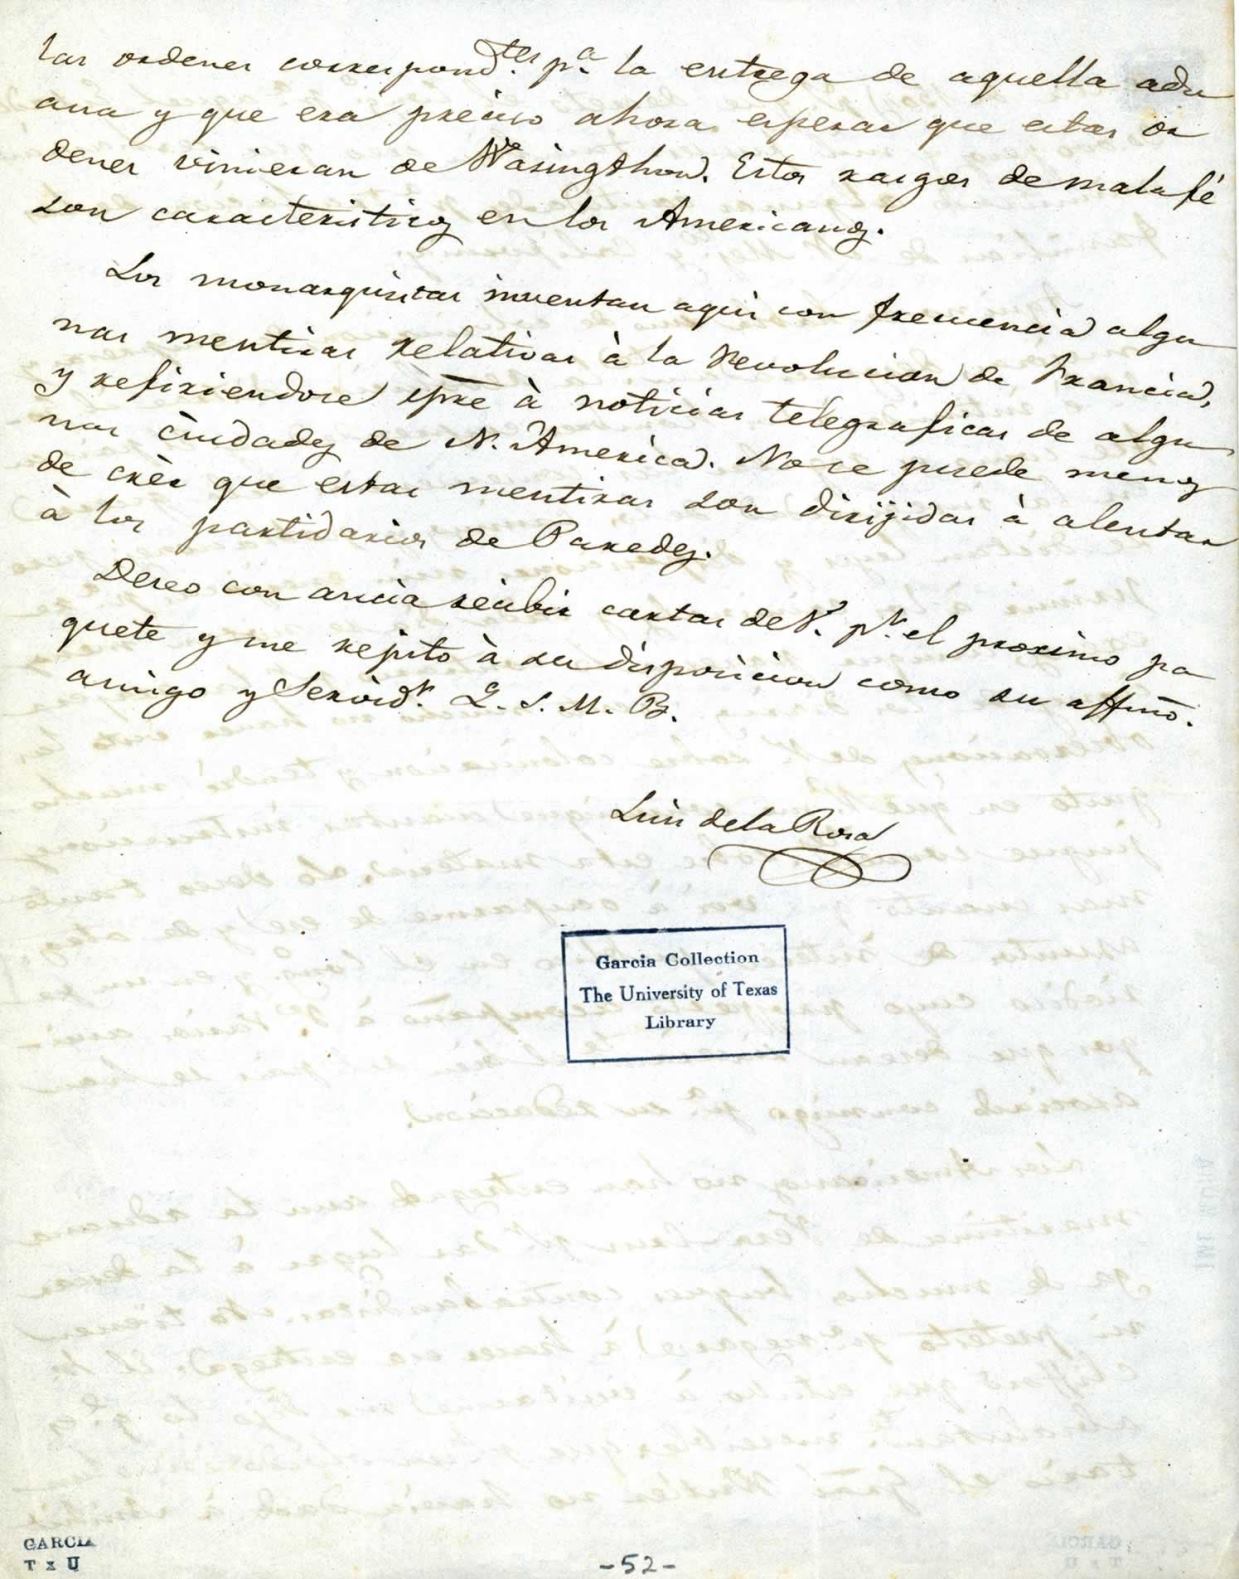 las ordenes correspond.tes p.a la entrega de aquella adu
ana y que era preciso ahora esperar que estas or
denes vinieran de Wasingthon. Estos rasgos de mala fé
son caracteristicos en los Americanos.
Los monarquistas inventan aqui con frecuencia algu
nas mentiras relativas à la revolucion de Francia,
y refiriendose spre à noticias telegraficas de algu
nas ciudades de N. America. No se puede menos
de creèr que estas mentiras son dirijidas à alentar
à los partidarios de Paredes.
Deseo con ancia recibir cartas de V. p.r el proximo pa
quete y me repito à su disposicion como su affmo.
amigo y Servid.r Q. S. M. B.
Luis de la Rosa
Garcia Collection
The University of Texas
Library
GARCIA
T x U
-52-